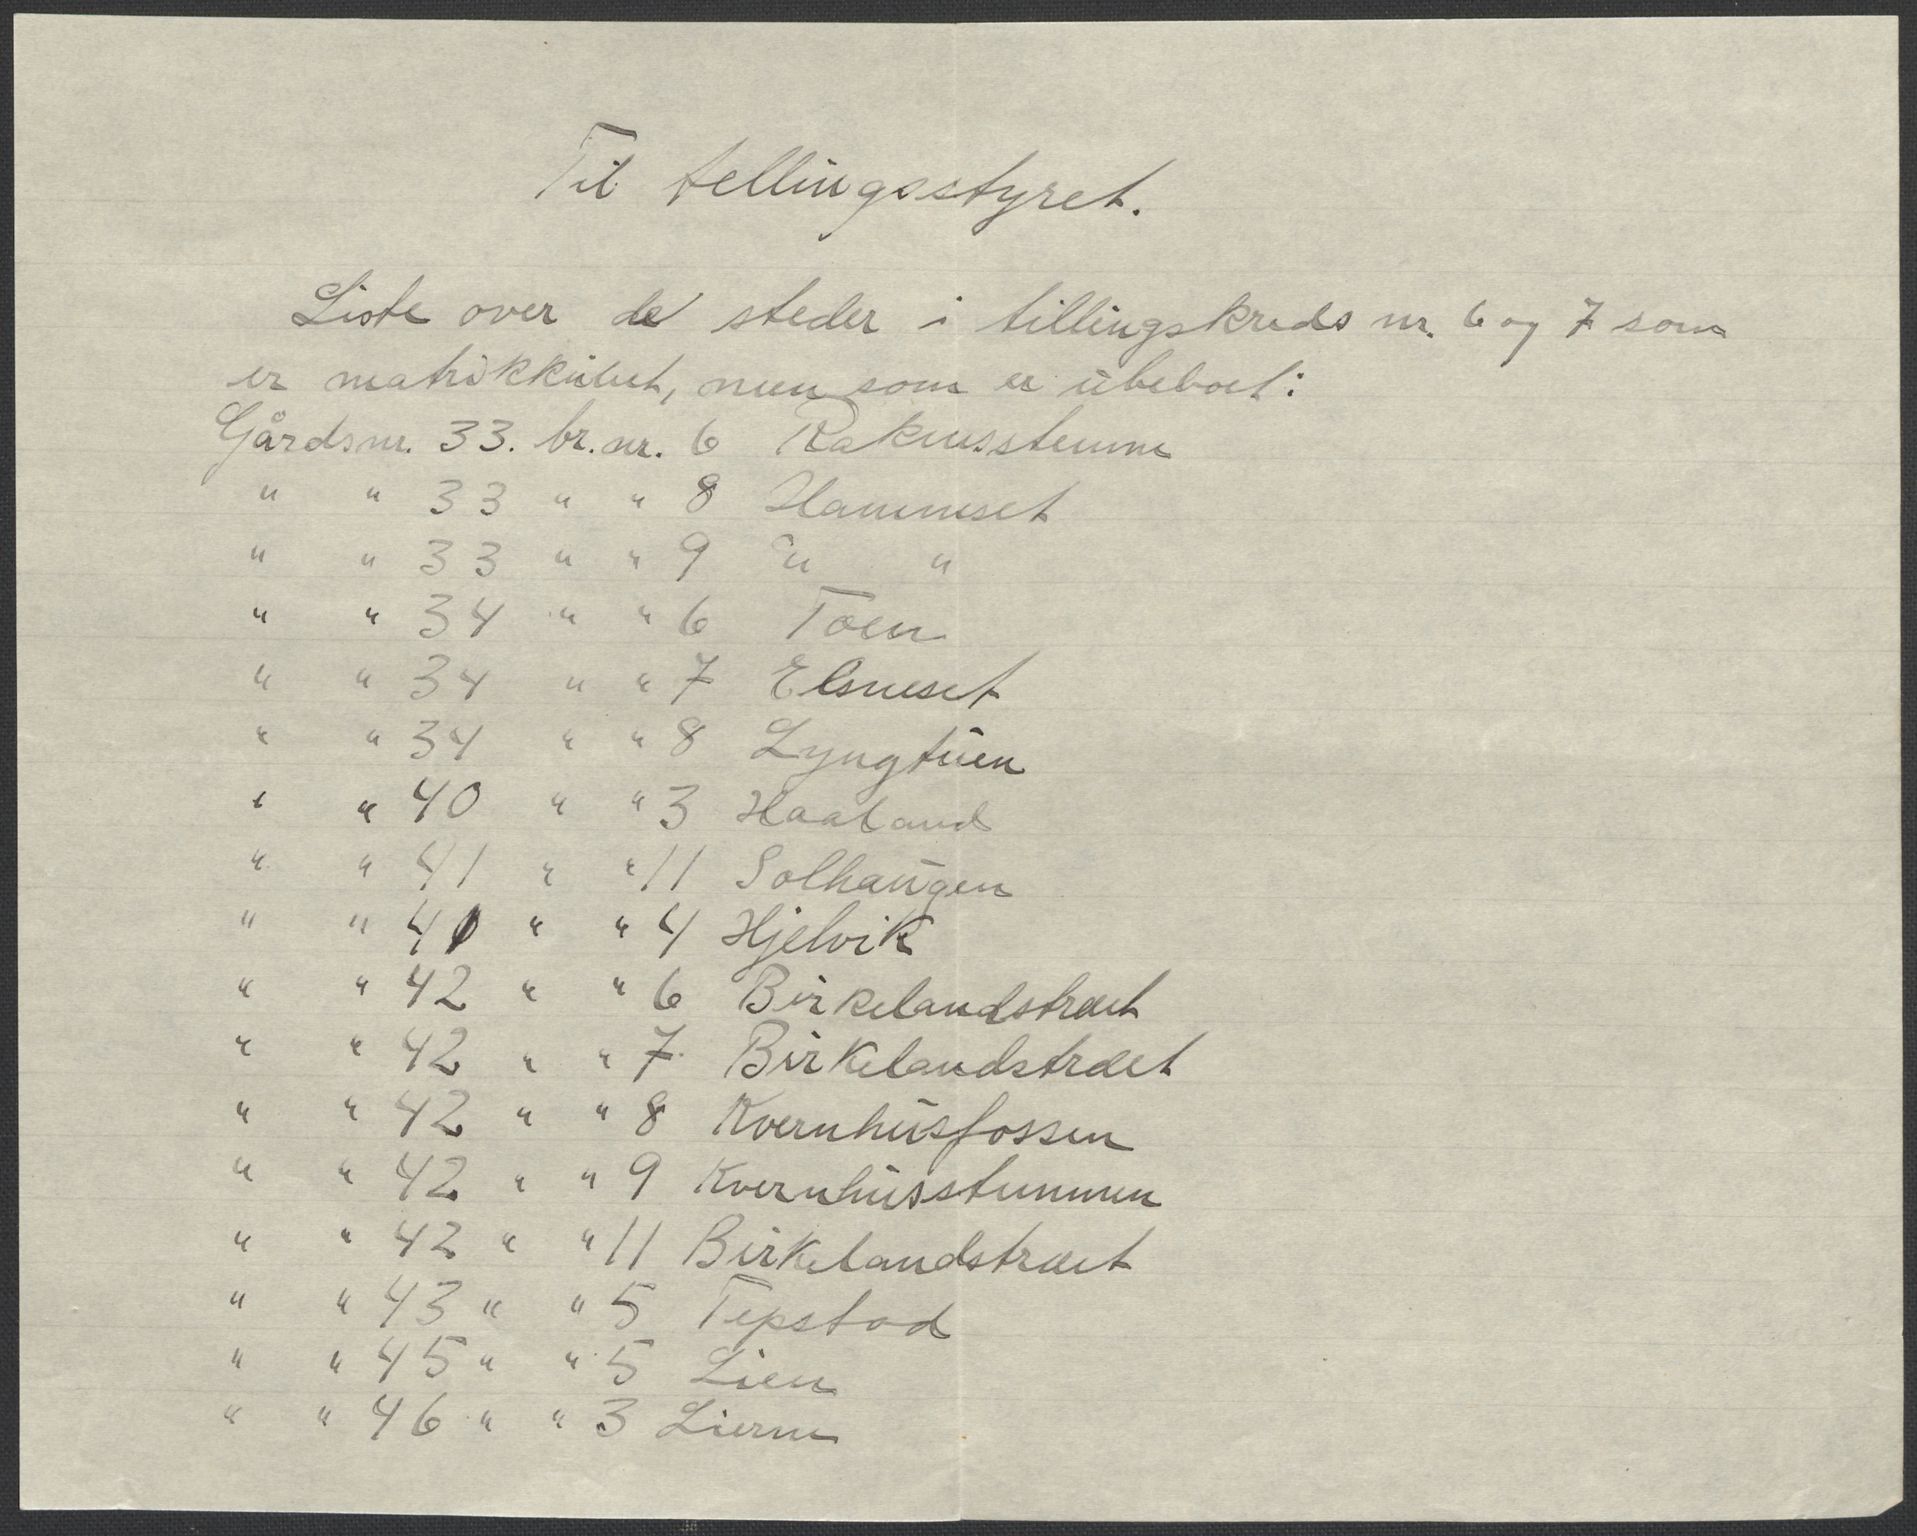 Til tellingsstyret.
Liste over de steder i tellingskreds nr. 6 og 7 som
er matrikkulert, men som er ubeboet:
Gårdsnr. 33. br. nr. 6 Raknesstemme
" " 33 " " 8 Hamneset
" " 33 " " 9 " "
" " 34 " " 6 Toen
" " 34 " " 7 Elsneset
" " 34 " " 8 Lyngtuen
" " 40 " " 3 Haaland
" " 41 " " 11 Solhaugen
" " 41 " " 4 Hjelvik
" " 42 " " 6 Birkelandstræet
" " 42 " " 7 Birkelandstræet
" " 42 " " 8 Kvernhusfossen
" " 42 " " 9 Kvernhusstemmen
" " 42 " " 11 Birkelandstræet
" " 43 " " 5 Tepstad
" " 45 " " 5 Lien
" " 46 " " 3 Lierne